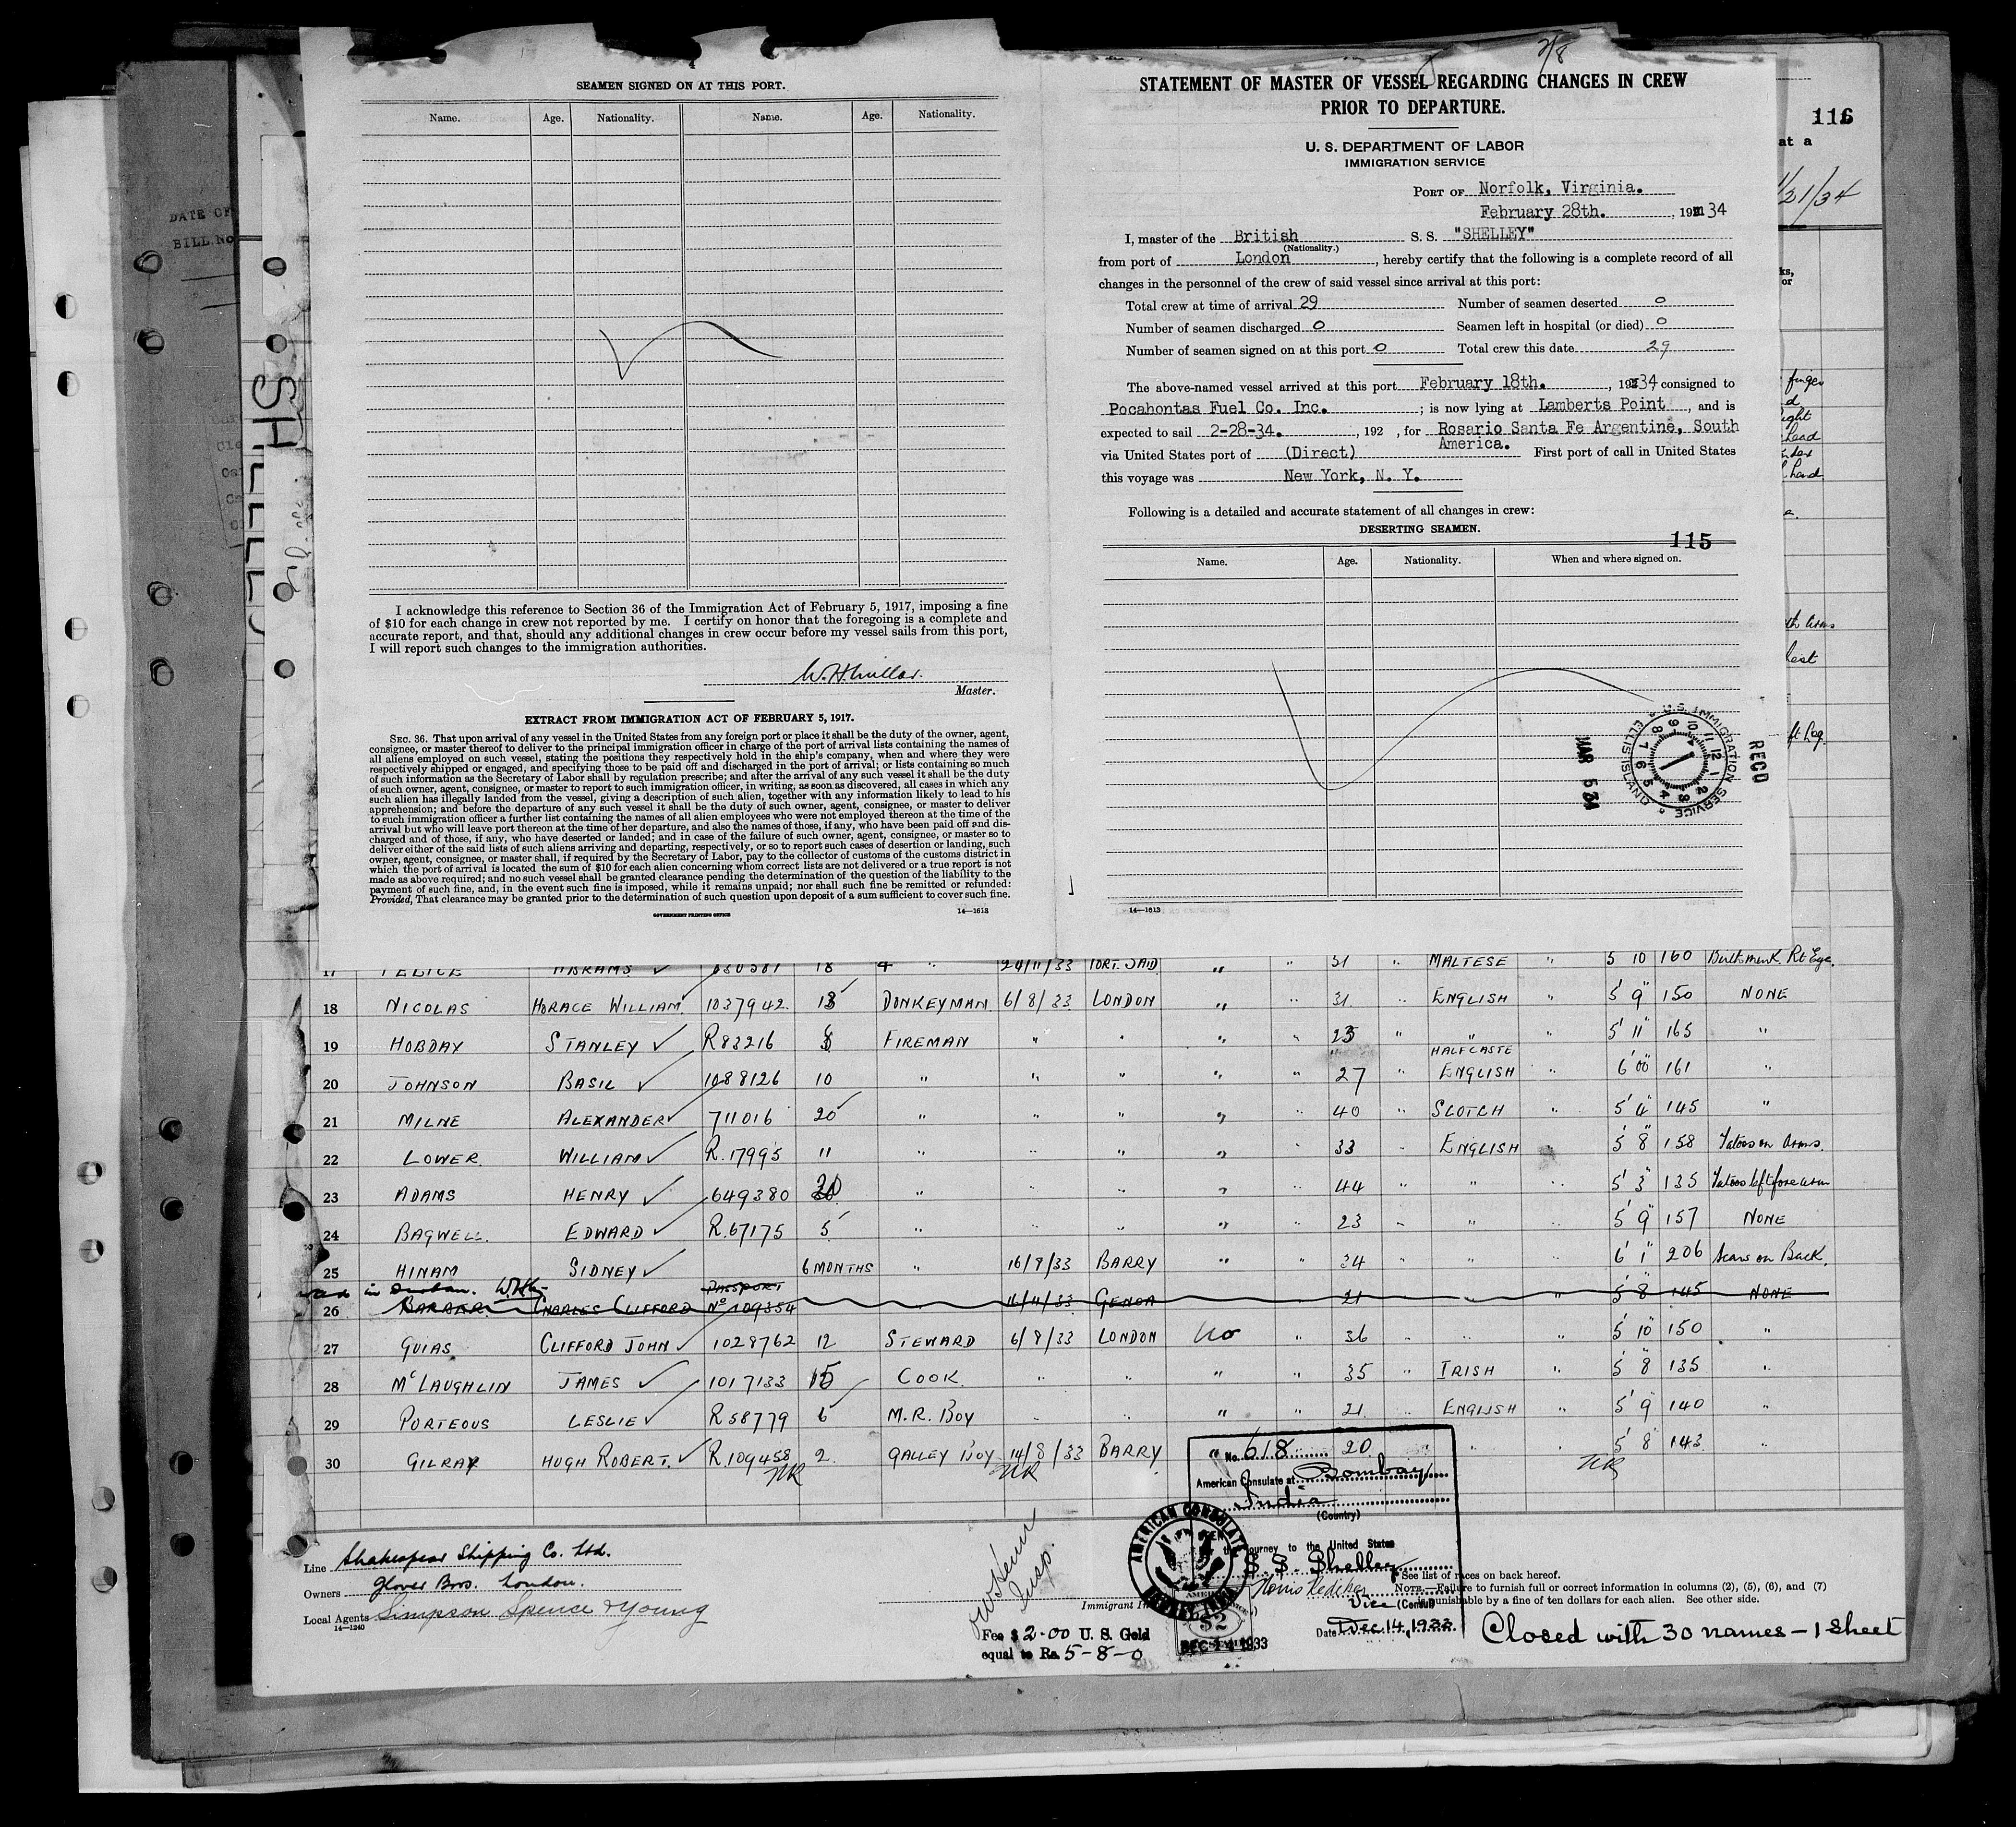 SEAMEN SIGNED ON AT THIS PORT.
Name. Age. Nationality. Name. Age. Nationality.
I acknowledge this reference to Section 36 of the Immigration Act of February 5, 1917, imposing a fine
of $10 for each change in crew not reported by me. I certify on honor that the foregoing is a complete and
accurate report, and that, should any additional changes in crew occur before my vessel sails from this port,
I will report such changes to the immigration authorities.
Master.
EXTRACT FROM IMMIGRATION ACT OF FEBRUARY 5, 1917.
SEC. 36. That upon arrival of any vessel in the United States from any foreign port or place it shall be the duty of the owner, agent,
consignee, or master thereof to deliver to the principal immigration officer in charge of the port of arrival lists containing the names of
all aliens employed on such vessel, stating the positions they respectively hold in the ship's company, when and where they were
respectively shipped or engaged, and specifying those to be paid off and discharged in the port of arrival; or lists containing so much
of such information as the Secretary of Labor shall by regulation prescribe; and after the arrival of any such vessel it shall be the duty
of such owner, agent, consignee, or master to report to such immigration officer, in writing, as soon as discovered, all cases in which any
such alien has illegally landed from the vessel, giving a description of such alien, together with any information likely to lead to his
apprehension; and before the departure of any such vessel it shall be the duty of such owner, agent, consignee, or master to deliver
to such immigration officer a further list containing the names of all alien employees who were not employed thereon at the time of the
arrival but who will leave port thereon at the time of her departure, and also the names of those, if any, who have been paid off and dis-
charged and of those, if any, who have deserted or landed; and in case of the failure of such owner, agent, consignee, or master so to
deliver either of the said lists of such aliens arriving and departing, respectively, or so to report such cases of desertion or landing, such
owner, agent, consignee, or master shall, if required by the Secretary of Labor, pay to the collector of customs of the customs district in
which the port of arrival is located the sum of $10 for each alien concerning whom correct lists are not delivered or a true report is not
made as above required; and no such vessel shall be granted clearance pending the determination of the question of the liability to the
payment of such fine, and, in the event such fine is imposed, while it remains unpaid; nor shall such fine be remitted or refunded:
Provided, That clearance may be granted prior to the determination of such question upon deposit of a sum sufficient to cover such fine.
GOVERNMENT PRINTING OFFICE 14—1613
STATEMENT OF MASTER OF VESSEL REGARDING CHANGES IN CREW
PRIOR TO DEPARTURE.
U. S. DEPARTMENT OF LABOR
IMMIGRATION SERVICE
PORT OF Norfolk, Virginia.
February 28th. , 1934
I, master of the British S. S. "SHELLEY"
(Nationality.)
from port of London , hereby certify that the following is a complete record of all
changes in the personnel of the crew of said vessel since arrival at this port:
Total crew at time of arrival 29 Number of seamen deserted 0
Number of seamen discharged 0 Seamen left in hospital (or died) 0
Number of seamen signed on at this port 0 Total crew this date 29
The above-named vessel arrived at this port February 18th. , 1934 consigned to
Pocahontas Fuel Co. Inc. ; is now lying at Lamberts Point , and is
expected to sail 2-28-34. , 192 , for Rosario Santa Fe Argentine, South
America.
via United States port of (Direct) First port of call in United States
this voyage was New York, N. Y.
Following is a detailed and accurate statement of all changes in crew:
DESERTING SEAMEN.
115
Name. Age. Nationality. When and where signed on.
U.S. IMMIGRATION SERVICE ELLIS ISLAND
RECD
MAR 5 34
14—1613
116
at a
/21/34
DATE OF
BILL No
finger
head
hand
17 FELICE ABRAMS 630581 18 4 " 24/11/33 PORT. SAID " " 51 " MALTESE " 5 10 160 Rt Eye.
18 NICOLAS HORACE WILLIAM 1037942 DONKEYMAN 6/8/33 LONDON " " 31 " ENGLISH " 5' 9" 150 NONE
19 HOBDAY STANLEY R83216 FIREMAN " " " " 25 " " " 5' 11" 165 "
HALFCASTE
20 JOHNSON BASIL 1088126 10 " " " " " 27 " ENGLISH " 6' 00" 161 "
21 MILNE ALEXANDER 711016 20 " " " " " 40 " SCOTCH " 5' 4" 145 "
22 LOWER. WILLIAM R. 17995 11 " " " " " 33 " ENGLISH 5' 8" 158 Tatoos on Arms.
23 ADAMS HENRY 649380 " " " " " 44 " " " 5' 3" 135 Tatoos left forearm
24 BAGWELL. EDWARD R.67175 5 " " " " " 23 " " " 5' 9" 157 NONE
25 HINAM SIDNEY 6 MONTHS " 16/8/33 BARRY " " 34 " " " 6' 1" 206 Scars on Back.
PASSPORT
26 BARBER CHARLES CLIFFORD No 109354 " 16/11/33 GENOA 21 " " 5' 8" 145 NONE
27 GUIAS CLIFFORD JOHN 1028762 12 STEWARD 6/8/33 LONDON No " 36 " " " 5' 10" 150 "
28 McLAUGHLIN JAMES 1017133 15 COOK. " " " " 35 " IRISH " 5' 8" 135 "
29 PORTEOUS LESLIE R58779 6 M.R. BOY " " " " 21 " ENGLISH " 5' 9" 140 "
30 GILRAY HUGH ROBERT. R.109458 2 GALLEY BOY 14/8/33 BARRY 20 " " 5' 8" 143 "
No. 618
American Consulate at Bombay
India
(Country)
journey to the United States
S.S. Shelley
Vice (Consul)
Date Dec. 14, 1933.
AMERICAN CONSULATE
$2
DEC 14 1933
Line Shakespear Shipping Co. Ltd.
Owners Glover Bros. London.
Local Agents Simpson Spence & Young
14—1240
Insp.
Immigrant In
Fee $ 2.00 U. S. Gold
equal to Rs. 5-8-0
See list of races on back hereof.
NOTE.—Failure to furnish full or correct information in columns (2), (5), (6), and (7)
is punishable by a fine of ten dollars for each alien. See other side.
Closed with 30 names — 1 sheet